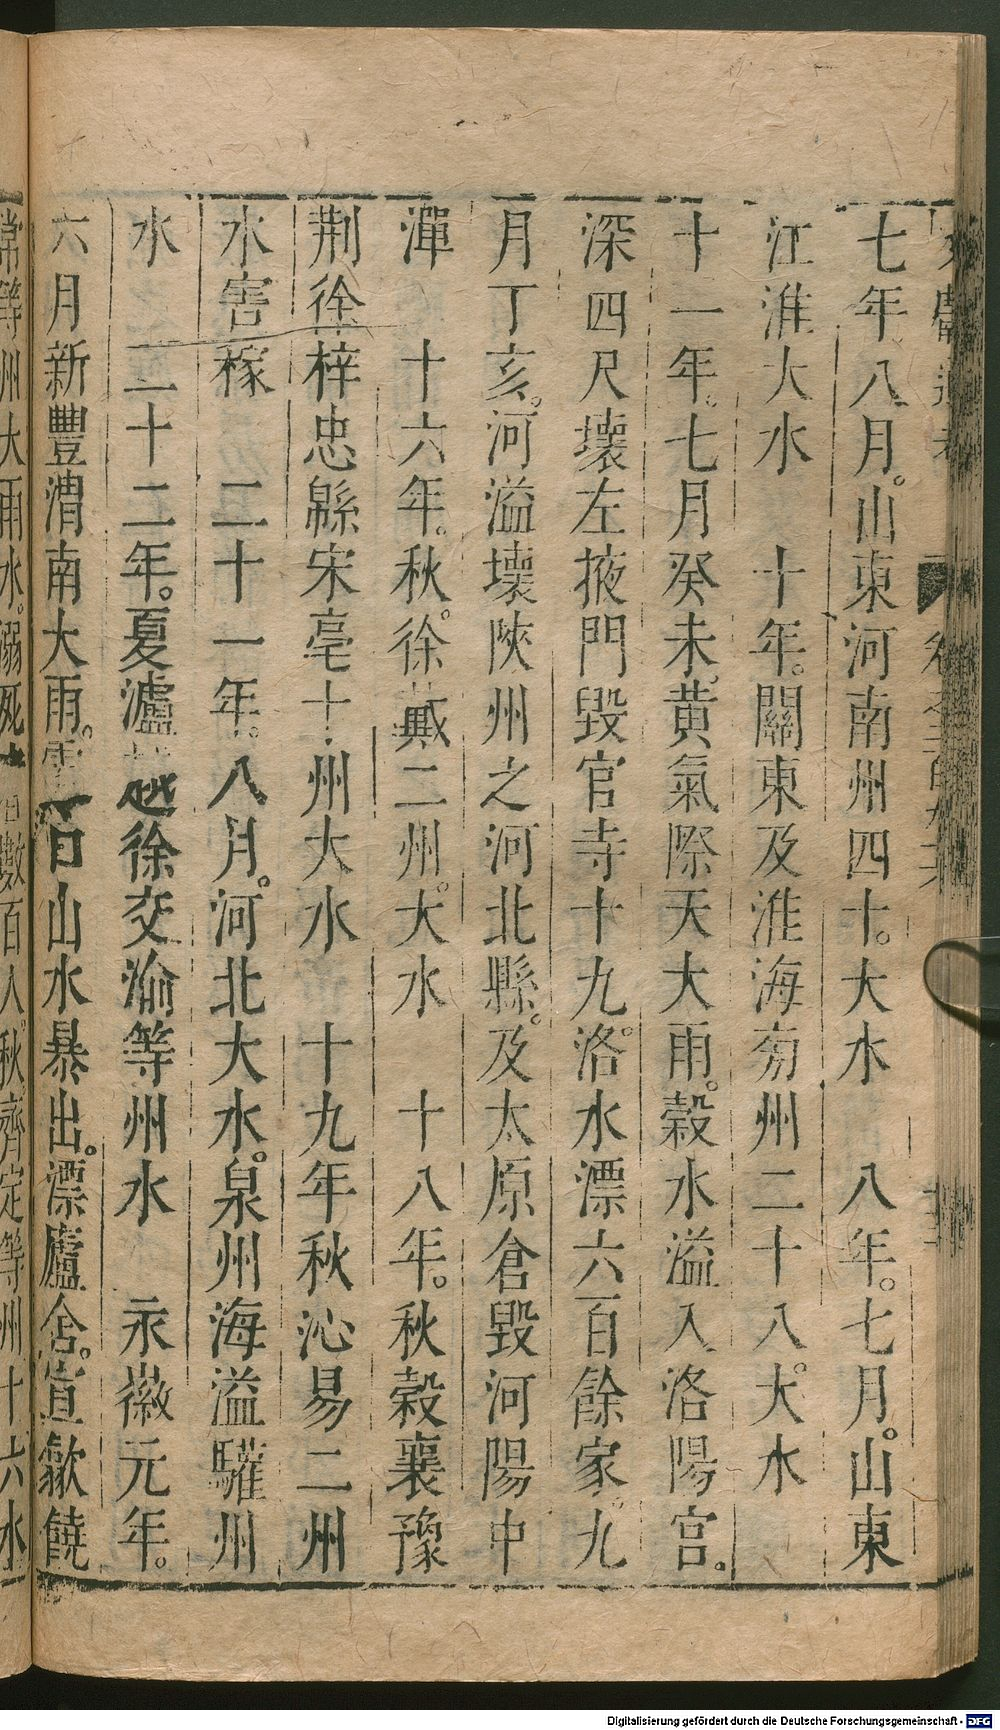 七年八月。山東河南州四十。大水　八年。七月。山東
江淮大水　十年。關東及淮海旁州二十八。大水
十一年。七月癸未。黃氣際天大雨。穀水溢入洛陽宮。
深四尺壞左掖門毀官寺十九。洛水漂六百餘家。九
月丁亥。河溢壞陝州之河北縣。及太原倉毀河陽中
潬　十六年。秋。徐戴二州。大水　十八年。秋穀襄豫
荆徐梓忠緜宋亳十州大水　十九年秋沁易二州
水害稼　二十一年。八月。河北大水。泉州海溢驩州
水　二十二年。夏瀘越徐交渝等州水　永徽元年。
六月新豐渭南大雨。零口山水暴出。漂廬舍。宣歙饒
常等州大雨水。溺死 數百人。秋齊定等州十六水
卷之二百九十六
Digitalisierung gefördert durch die Deutsche Forschungsgemeinschaft - DFG